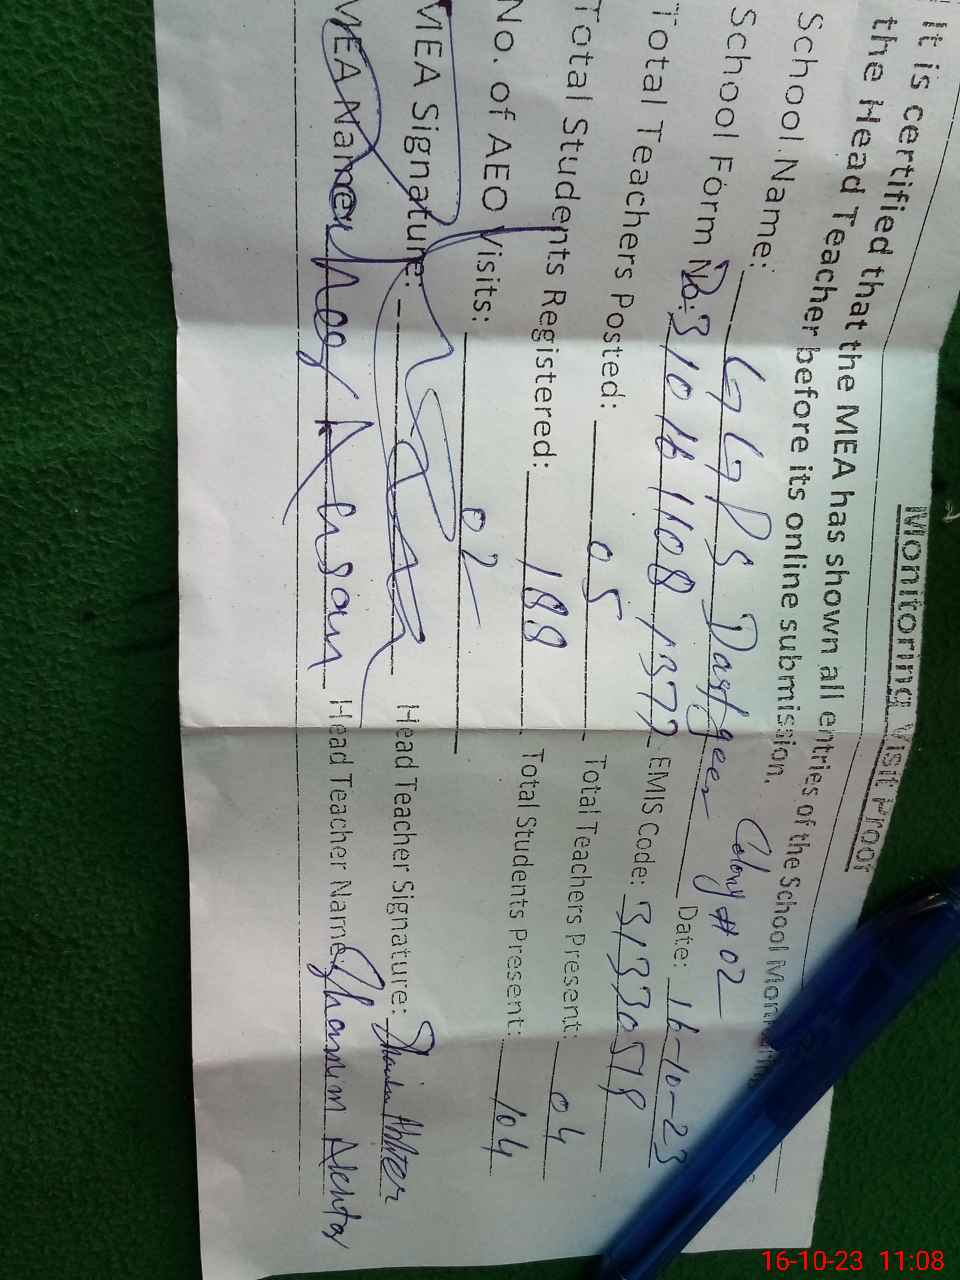 Monitoring Visit Proof
It is certified that the MEA has shown all entries of the School Monitoring
the Head Teacher before its online submission.
School Name: GGPS Dastgeer Colony # 02 Date: 16-10-23
School Form No: EMIS Code: 31330578
Total Teachers Posted: 05 Total Teachers Present: 04
Total Students Registered: 188 Total Students Present: 104
No. of AEO Visits: 02
MEA Signature: Head Teacher Signature: Shamim Akhter
MEA Name: Ahsan Head Teacher Name: Shamim Akhter
16-10-23 11:08